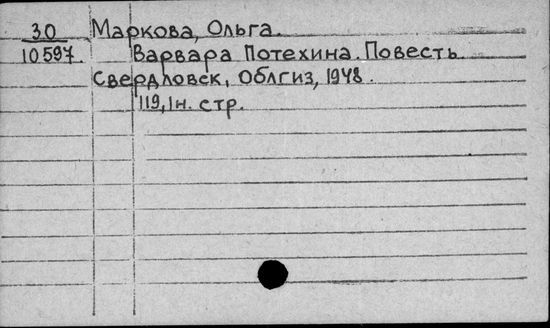 30 Маркова, Ольга.
10597. Варвара Потехина. Повесть.
Свердловск, Облгиз, 1948.
119, 1н. стр.